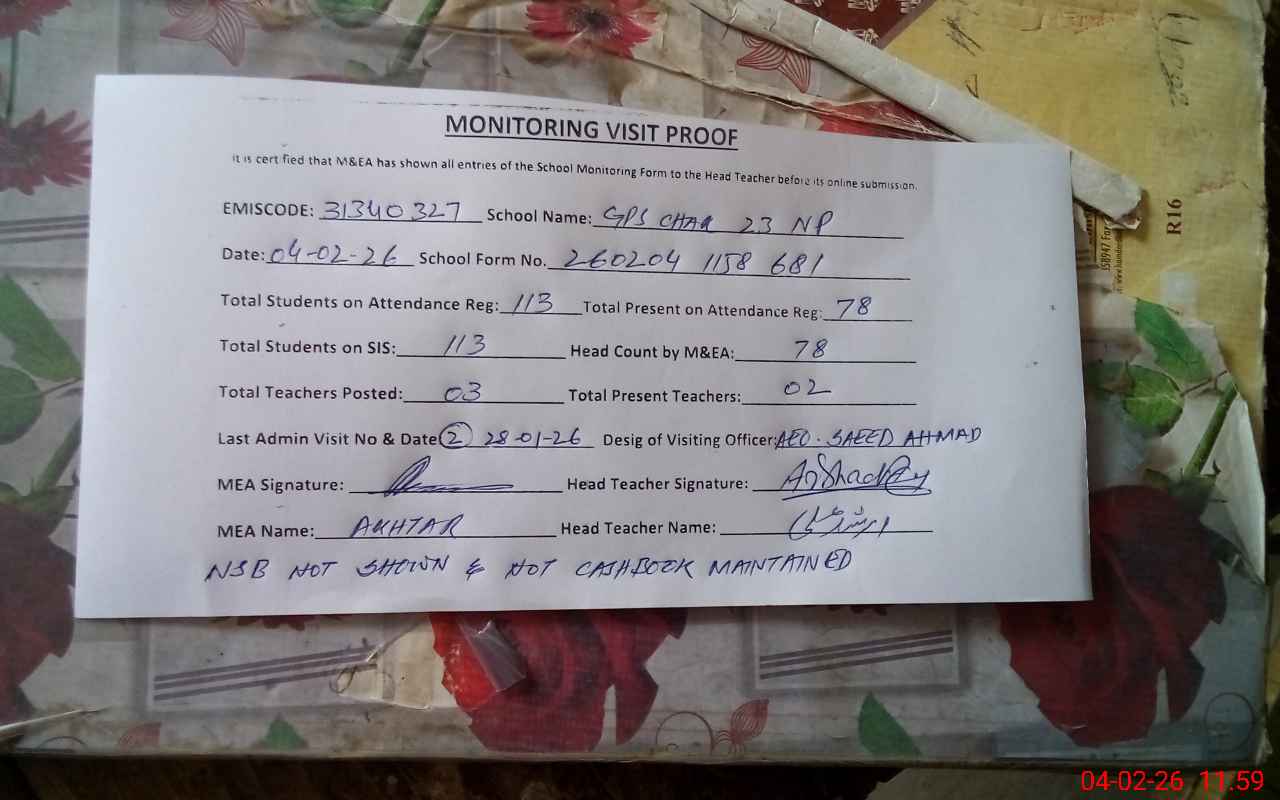 MONITORING VISIT PROOF
It is certified that M&EA has shown all entries of the School Monitoring Form to the Head Teacher before its online submission.
EMISCODE: 31340327 School Name: GPS CHAK 23 NP
Date: 04-02-26 School Form No. 260204 1158 681
Total Students on Attendance Reg: 113 Total Present on Attendance Reg: 78
Total Students on SIS: 113 Head Count by M&EA: 78
Total Teachers Posted: 03 Total Present Teachers: 02
Last Admin Visit No & Date 2 28-01-26 Desig of Visiting Officer: AEO. SAEED AHMAD
MEA Signature: Head Teacher Signature: Arshad
MEA Name: AKHTAR Head Teacher Name: ارشد علی
NSB NOT SHOWN & NOT CASHBOOK MAINTAINED
R16
04-02-26 11.59